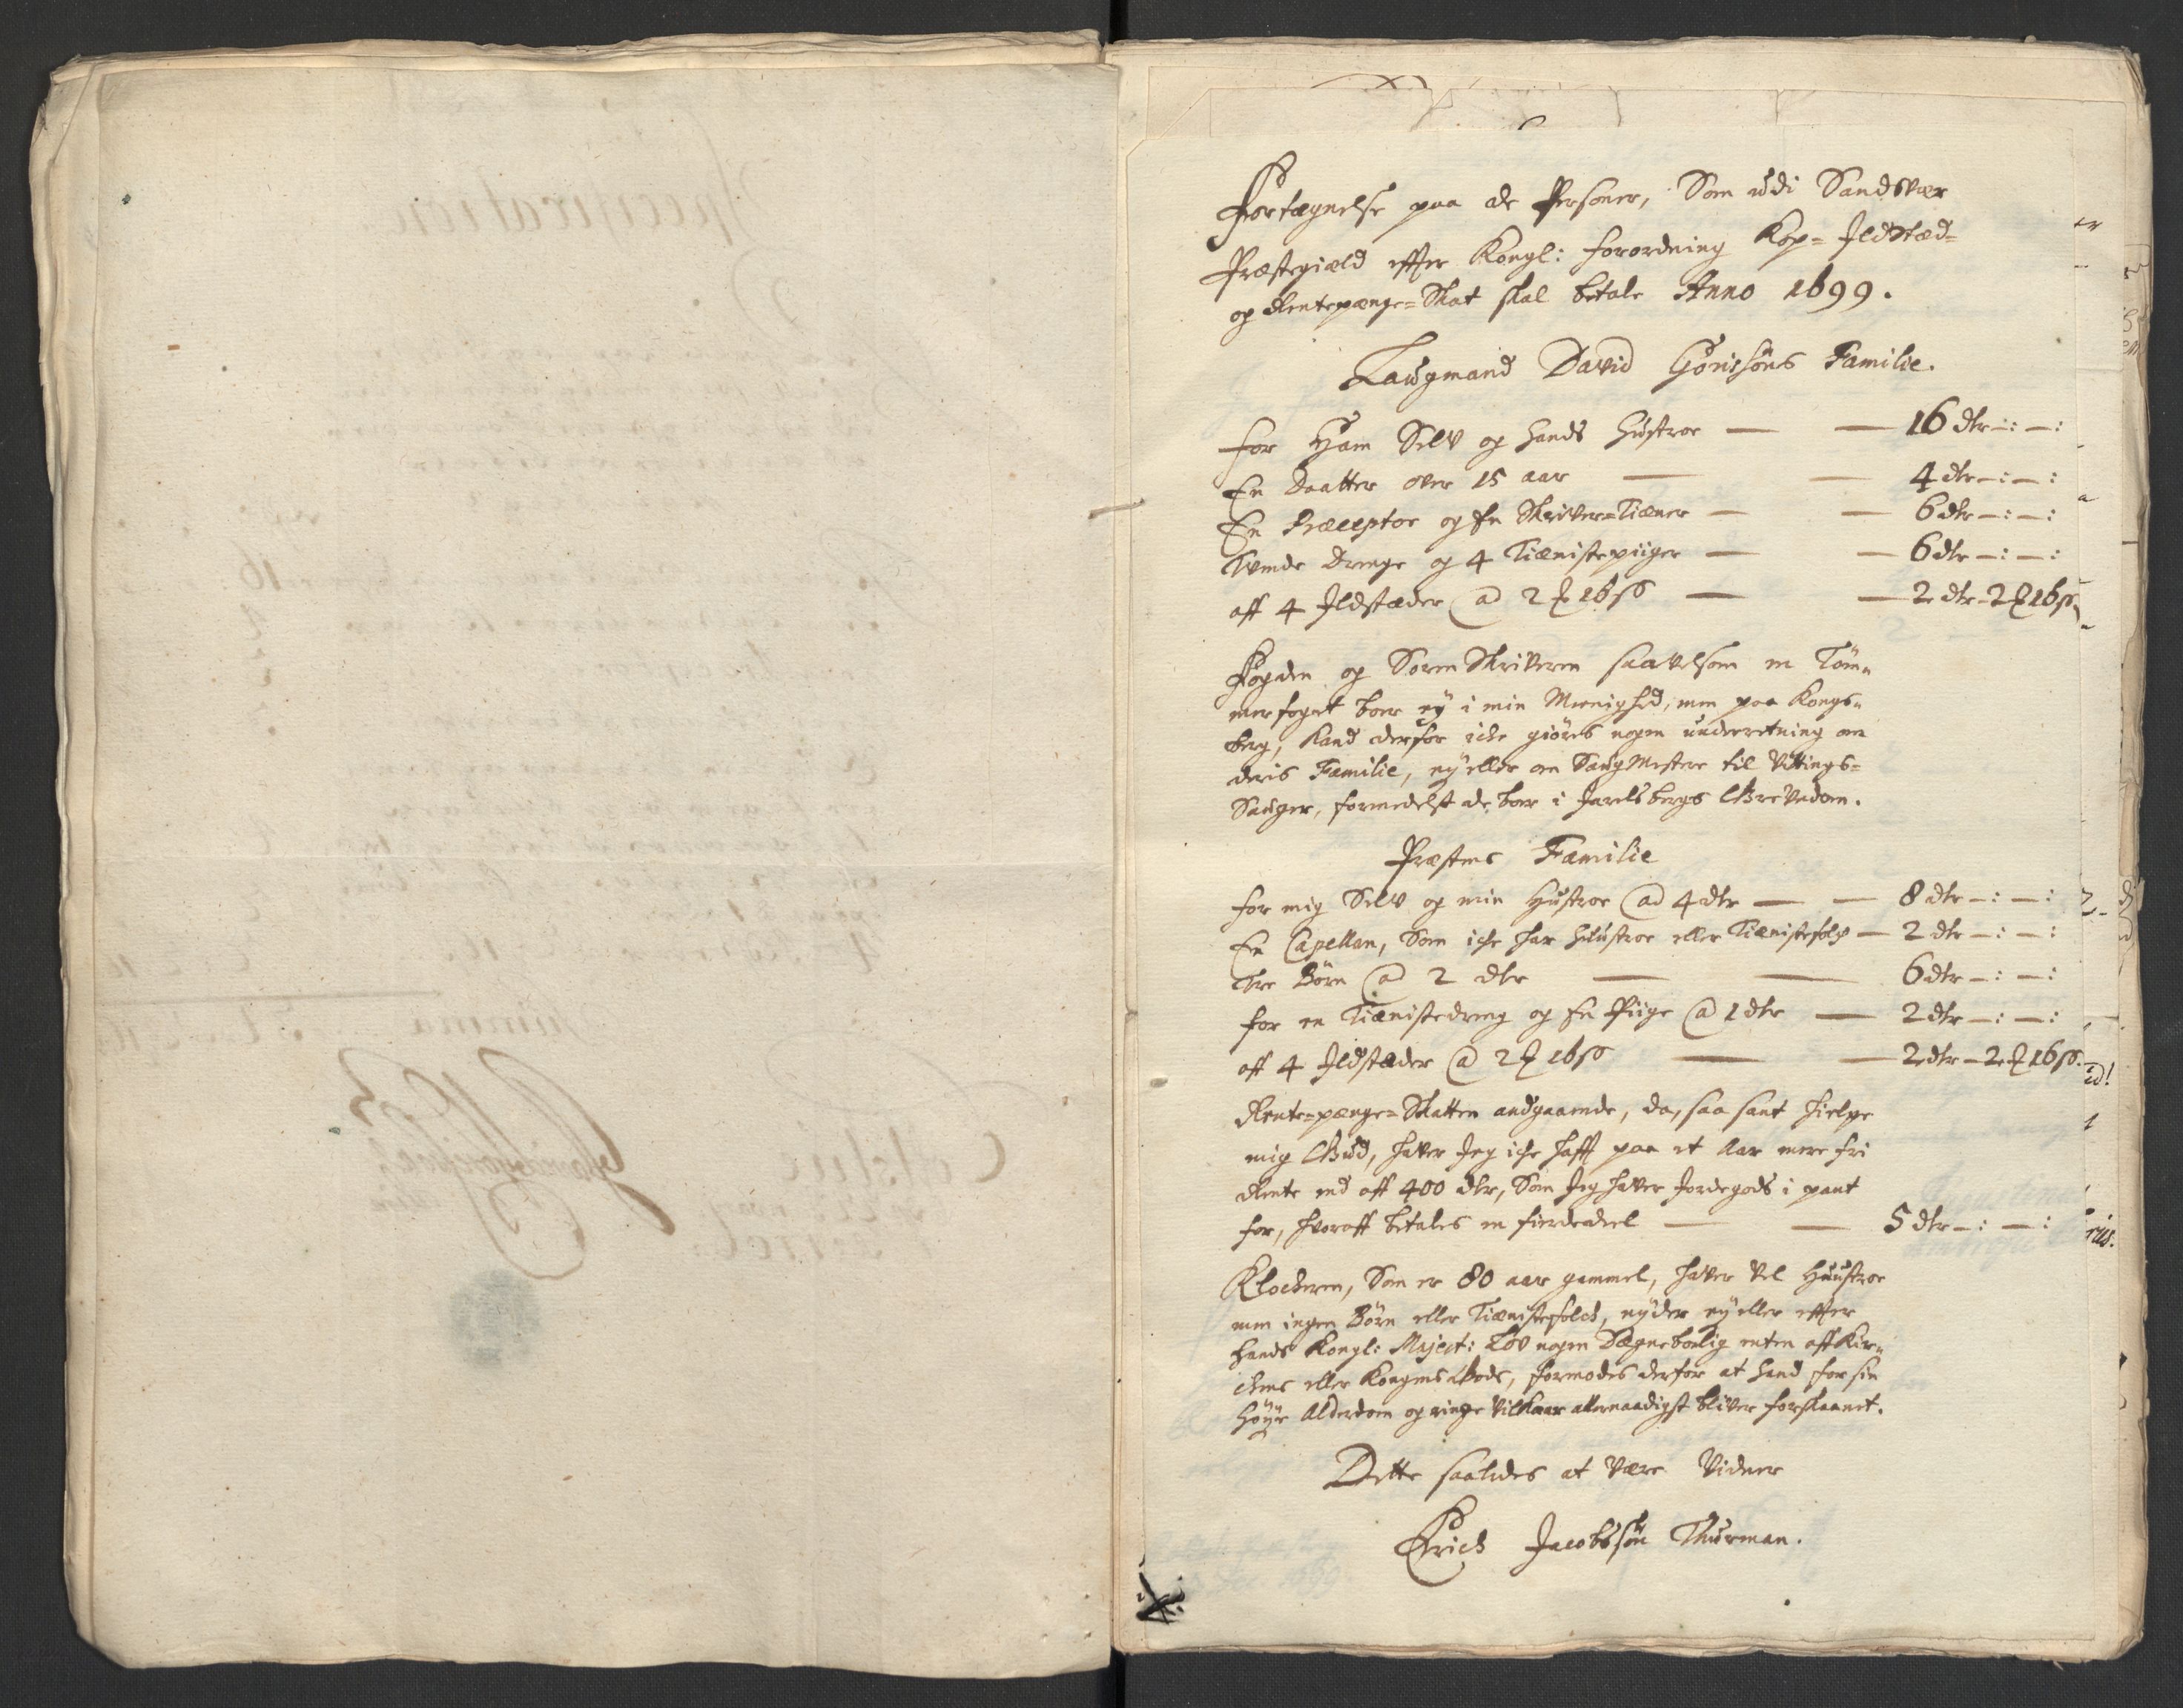 Fortægnelse paa de Personer, Som udi Sandsvær
Præstegiæld effter Kongl: forordning Kop= Ildstæd=
og Rentepænge=Skat skal betale Anno 1699.
Laugmand David Görissöns Familie.
for Ham Selv og hands Hustroe — — 16 dlr —: —:
En Daatter over 15 aar — — 4 dlr —: —:
En Præceptor og En Skriver=Tiæner — — 6 dlr —: —:
Tvende Drenge og 4 Tiænistepiiger — — 6 dlr —: —:
aff 4 Ildstæder @ 2 ꝣ 16 ß — — 2 dlr - 2 ꝣ 16 ß
Fogden og Sorenskriveren saavelsom en Töm=
merfoget boer ey i min Meenighed, men paa Kongs=
berg, kand derfor icke giöres nogen underretning om
deris Familie, ey eller om Saugmestere til Vittings=
Sauger, formedelst de boer i Jarlsbergs Grevedom.
Præstens Familie
for mig Selv og min Hustroe @ 4 dlr — — 8 dlr —: —:
En Capellan, Som iche har Huustroe eller Tiænistefolch — 2 dlr —: —:
Tre Börn @ 2 dlr — — 6 dlr —: —:
for en Tiænistedreng og En Piige @ 1 dlr — 2 dlr —: —:
aff 4 Ildstæder @ 2 ꝣ 16 ß — — 2 dlr — 2 ꝣ 16 ß.
Rente=pænge=Skatten andgaaende, da, saa sant hielpe
mig Gud, haver Jeg iche hafft paa et Aar mere fri
Rente end aff 400 dlr, Som Jeg haver Jordegods i pant
for, hvoraff betales en fierdedeel — — 5 dlr —: —:
Klockeren, Som er 80 aar gammel, haver vel Huustroe
men ingen Börn eller Tiænistefolck, nyder ey eller effter
hands Kongl: Majest: Lov nogen Degnebolig enten aff Kir=
chens eller Kongens Gods, formodes derfor at hand for sin
höye Alderdom og ringe Vilkaar allernaadigst bliver forskaanet.
Dette saaledes at være Vidner
Erich Jacobssön Thurman.